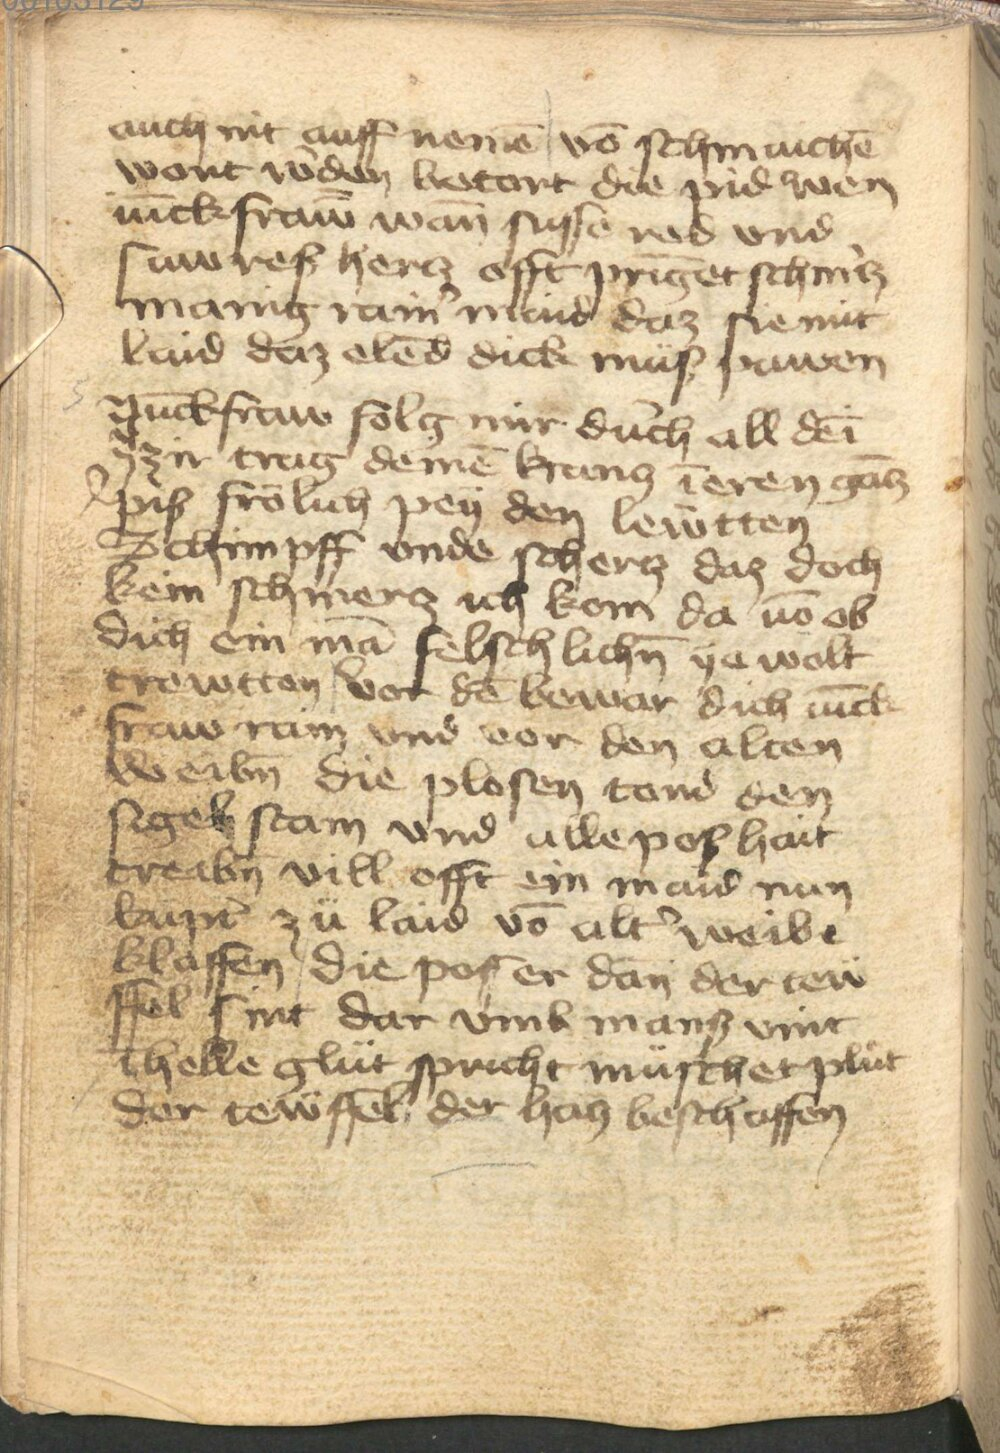 00103129
auch nit auff nemē vō schmaichē
wort w̉den betort die pid wen
iūckfraw̄ wan̄ susse red vnd
sawres hertz offt prīget schm̉tz
manig rain̉ maid daz sie mit
laid daz elēd dick müß pawen
5
Jūckfraw folg mir durch all dēi
zir trag deinē krantz ī eren gātz
piß frölich peÿ den lewtten
Schimpff vnde schertz daz doch
kein schmertz ich kom da vō ob
dich ein mā felschlichn̄ ye wolt
trewtten vor dē bewar dich iūck
fraw rain vnd vor den alten
weibn̄ die plosen tand den
sigelstain vnd alle poßhait
treibn̄ vill offt ein maid nun
kūpt zü laid vō alt̉ weibe
klaffen die poser dan̄ der tew
ffel sint dar vmb mans vint
ī helle glüt spricht müschet plüt
der tewffel der hatz beschaffen